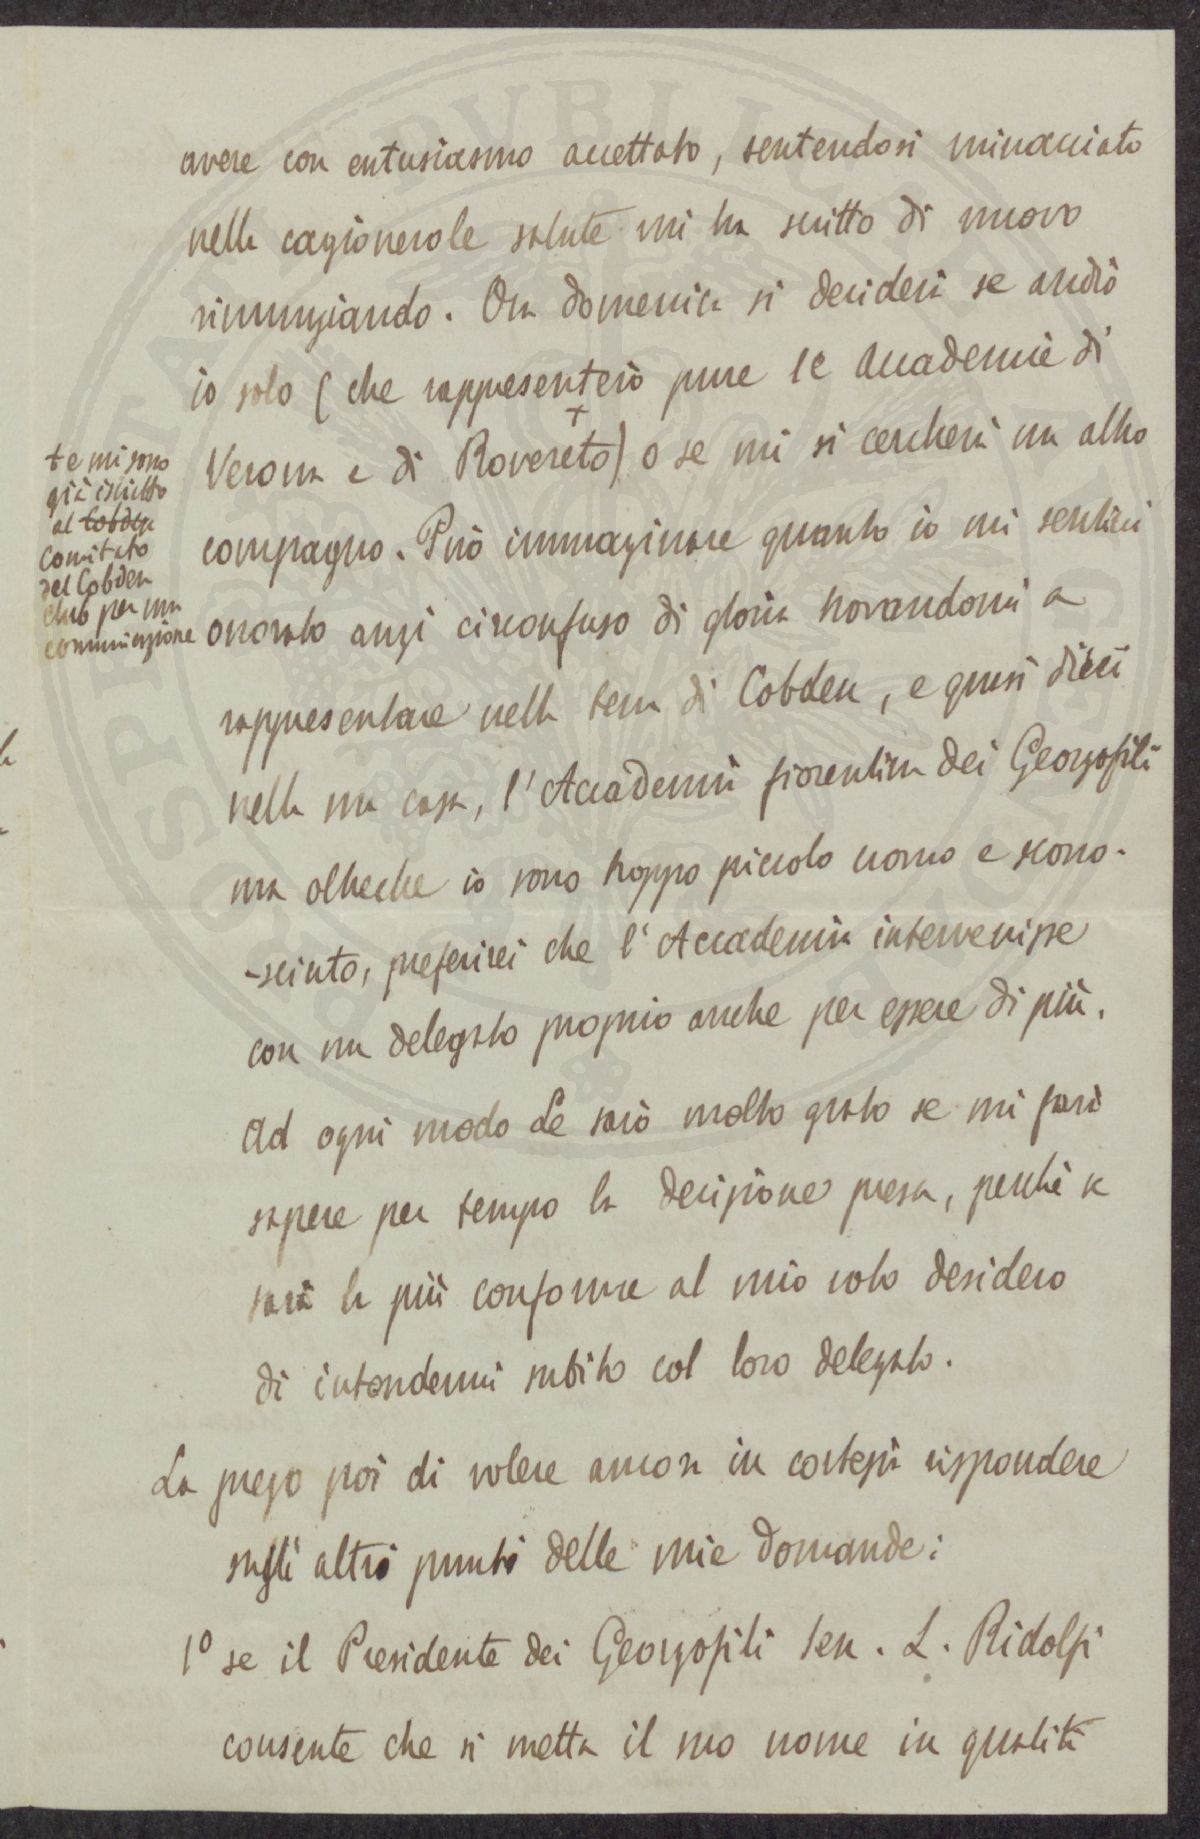 avere con entusiasmo accettato, sentendosi minacciato
nella cagionevole salute mi ha scritto di nuovo
rinunziando. Ora domenica si deciderà se andrò
io solo (che rappresenterò pure le Accademie di
Verona e di Rovereto+) o se mi si cercherà un altro
compagno. Può immaginare quanto io mi sentirei
onorato anzi circonfuso di gloria trovandomi a
rappresentare nella terra di Cobden, e quasi direi
nella sua casa, l'Accademia fiorentina dei Georgofili
ma oltreche io sono troppo piccolo uomo e scono-
-sciuto, preferirei che l'Accademia intervenisse
con un delegato proprio anche per essere di più.
Ad ogni modo Le sarò molto grato se mi farà
sapere per tempo la decisione presa, perchè se
sarà la più conforme al mio voto desidero
di intendermi subito col loro delegato.
La prego poi di volere ancora in cortesia rispondere
sugli altri punti delle mie domande:
1º se il Presidente dei Georgofili Sen. L. Ridolfi
consente che si metta il suo nome in qualità
+ e mi sono
già iscritto
al Cobden
Comitato
del Cobden
Club per una
comunicazione